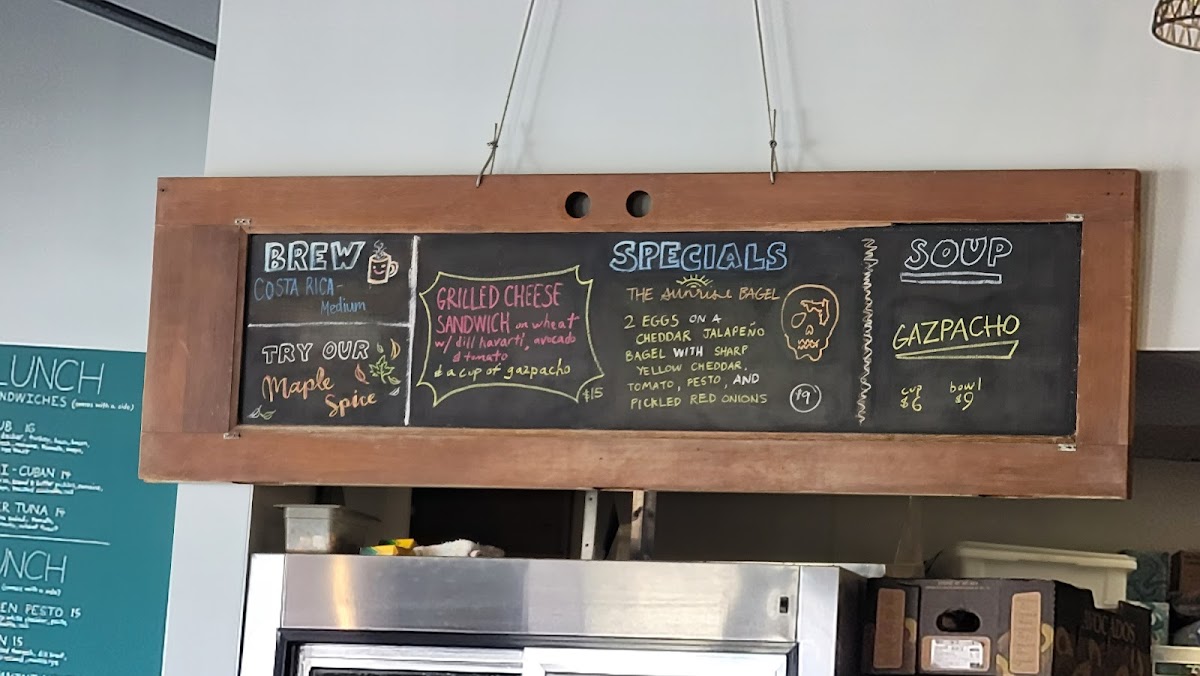 BREW
COSTA RICA-
Medium
TRY OUR
Maple
Spice
SPECIALS
GRILLED CHEESE
SANDWICH on wheat
w/ dill havarti, avocado
& tomato
& a cup of gazpacho
$15
THE sunrise BAGEL
2 EGGS ON A
CHEDDAR JALAPEÑO
BAGEL WITH SHARP
YELLOW CHEDDAR,
TOMATO, PESTO, AND
PICKLED RED ONIONS
$9
SOUP
GAZPACHO
cup bowl
$6 $9
LUNCH
NDWICHES (comes with a side)
UB 16
I-CUBAN 14
R TUNA 14
NCH
(comes with a side)
EN PESTO 15
N 15
OCADOS